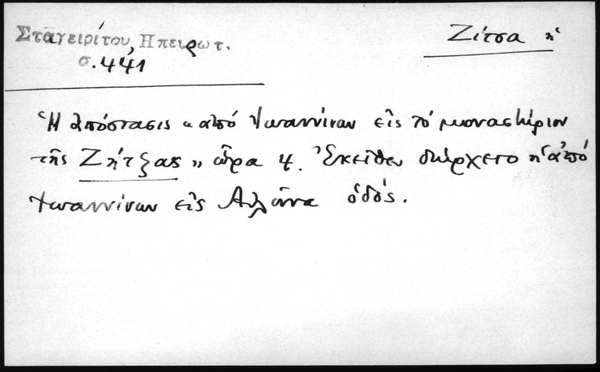 Σταγειρίτου, Ηπειρωτ.
σ. 441
Ζίτσα ἡ
Ἡ ἀπόστασις «ἀπό Ἰωαννίνων εἰς τό μοναστήριον
τῆς Ζήτζας» ὥρα 4. Ἐκεῖθεν διήρχετο ἡ ἀπό
Ἰωαννίνων εἰς Αὐλῶνα ὁδός.